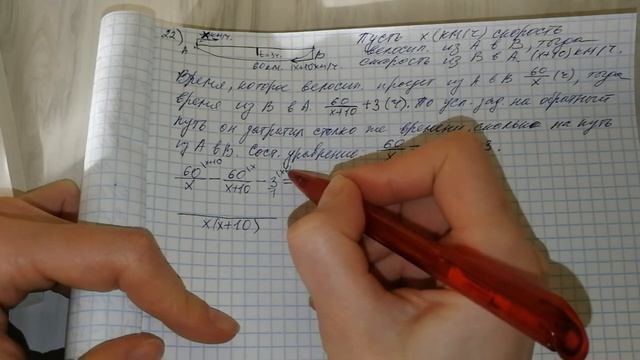 22) x км/ч.
A t=3ч. B
60 км. (x+10) км/ч.
Пусть x (км/ч) скорость
велосип. из A в B, тогда
скорость из B в A, (x+10) км/ч.
Время, которое велосип. проедет из A в B 60/x (ч), тогда
время из B в A 60/(x+10) + 3 (ч). По усл. зад. на обратный
путь он затратил столко же времени, сколько на путь
из A в B. Сост. уравнение 60/x - 3.
60/x - 60/(x+10) - 3/1 =
x(x+10)